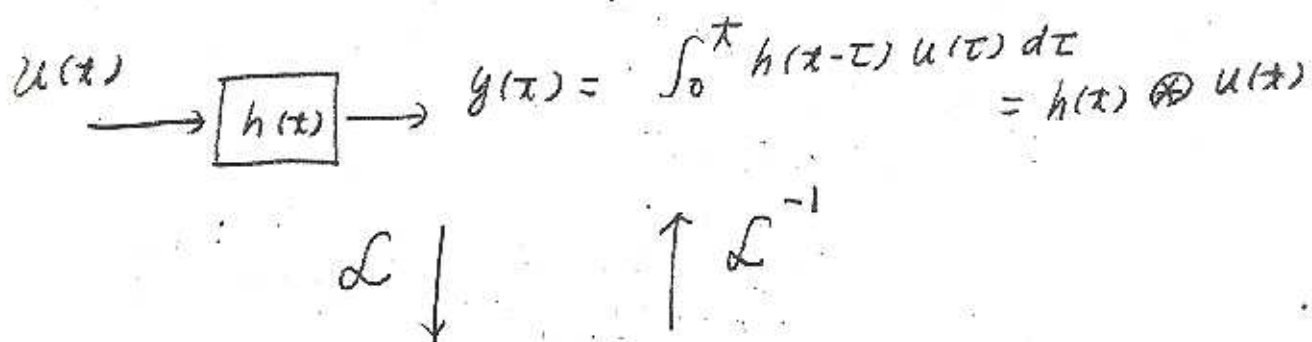 u(t) → h(t) → y(t) = ∫₀ᵗ h(t-τ) u(τ) dτ
= h(t) ⊛ u(t)
ℒ ↓ ↑ ℒ⁻¹